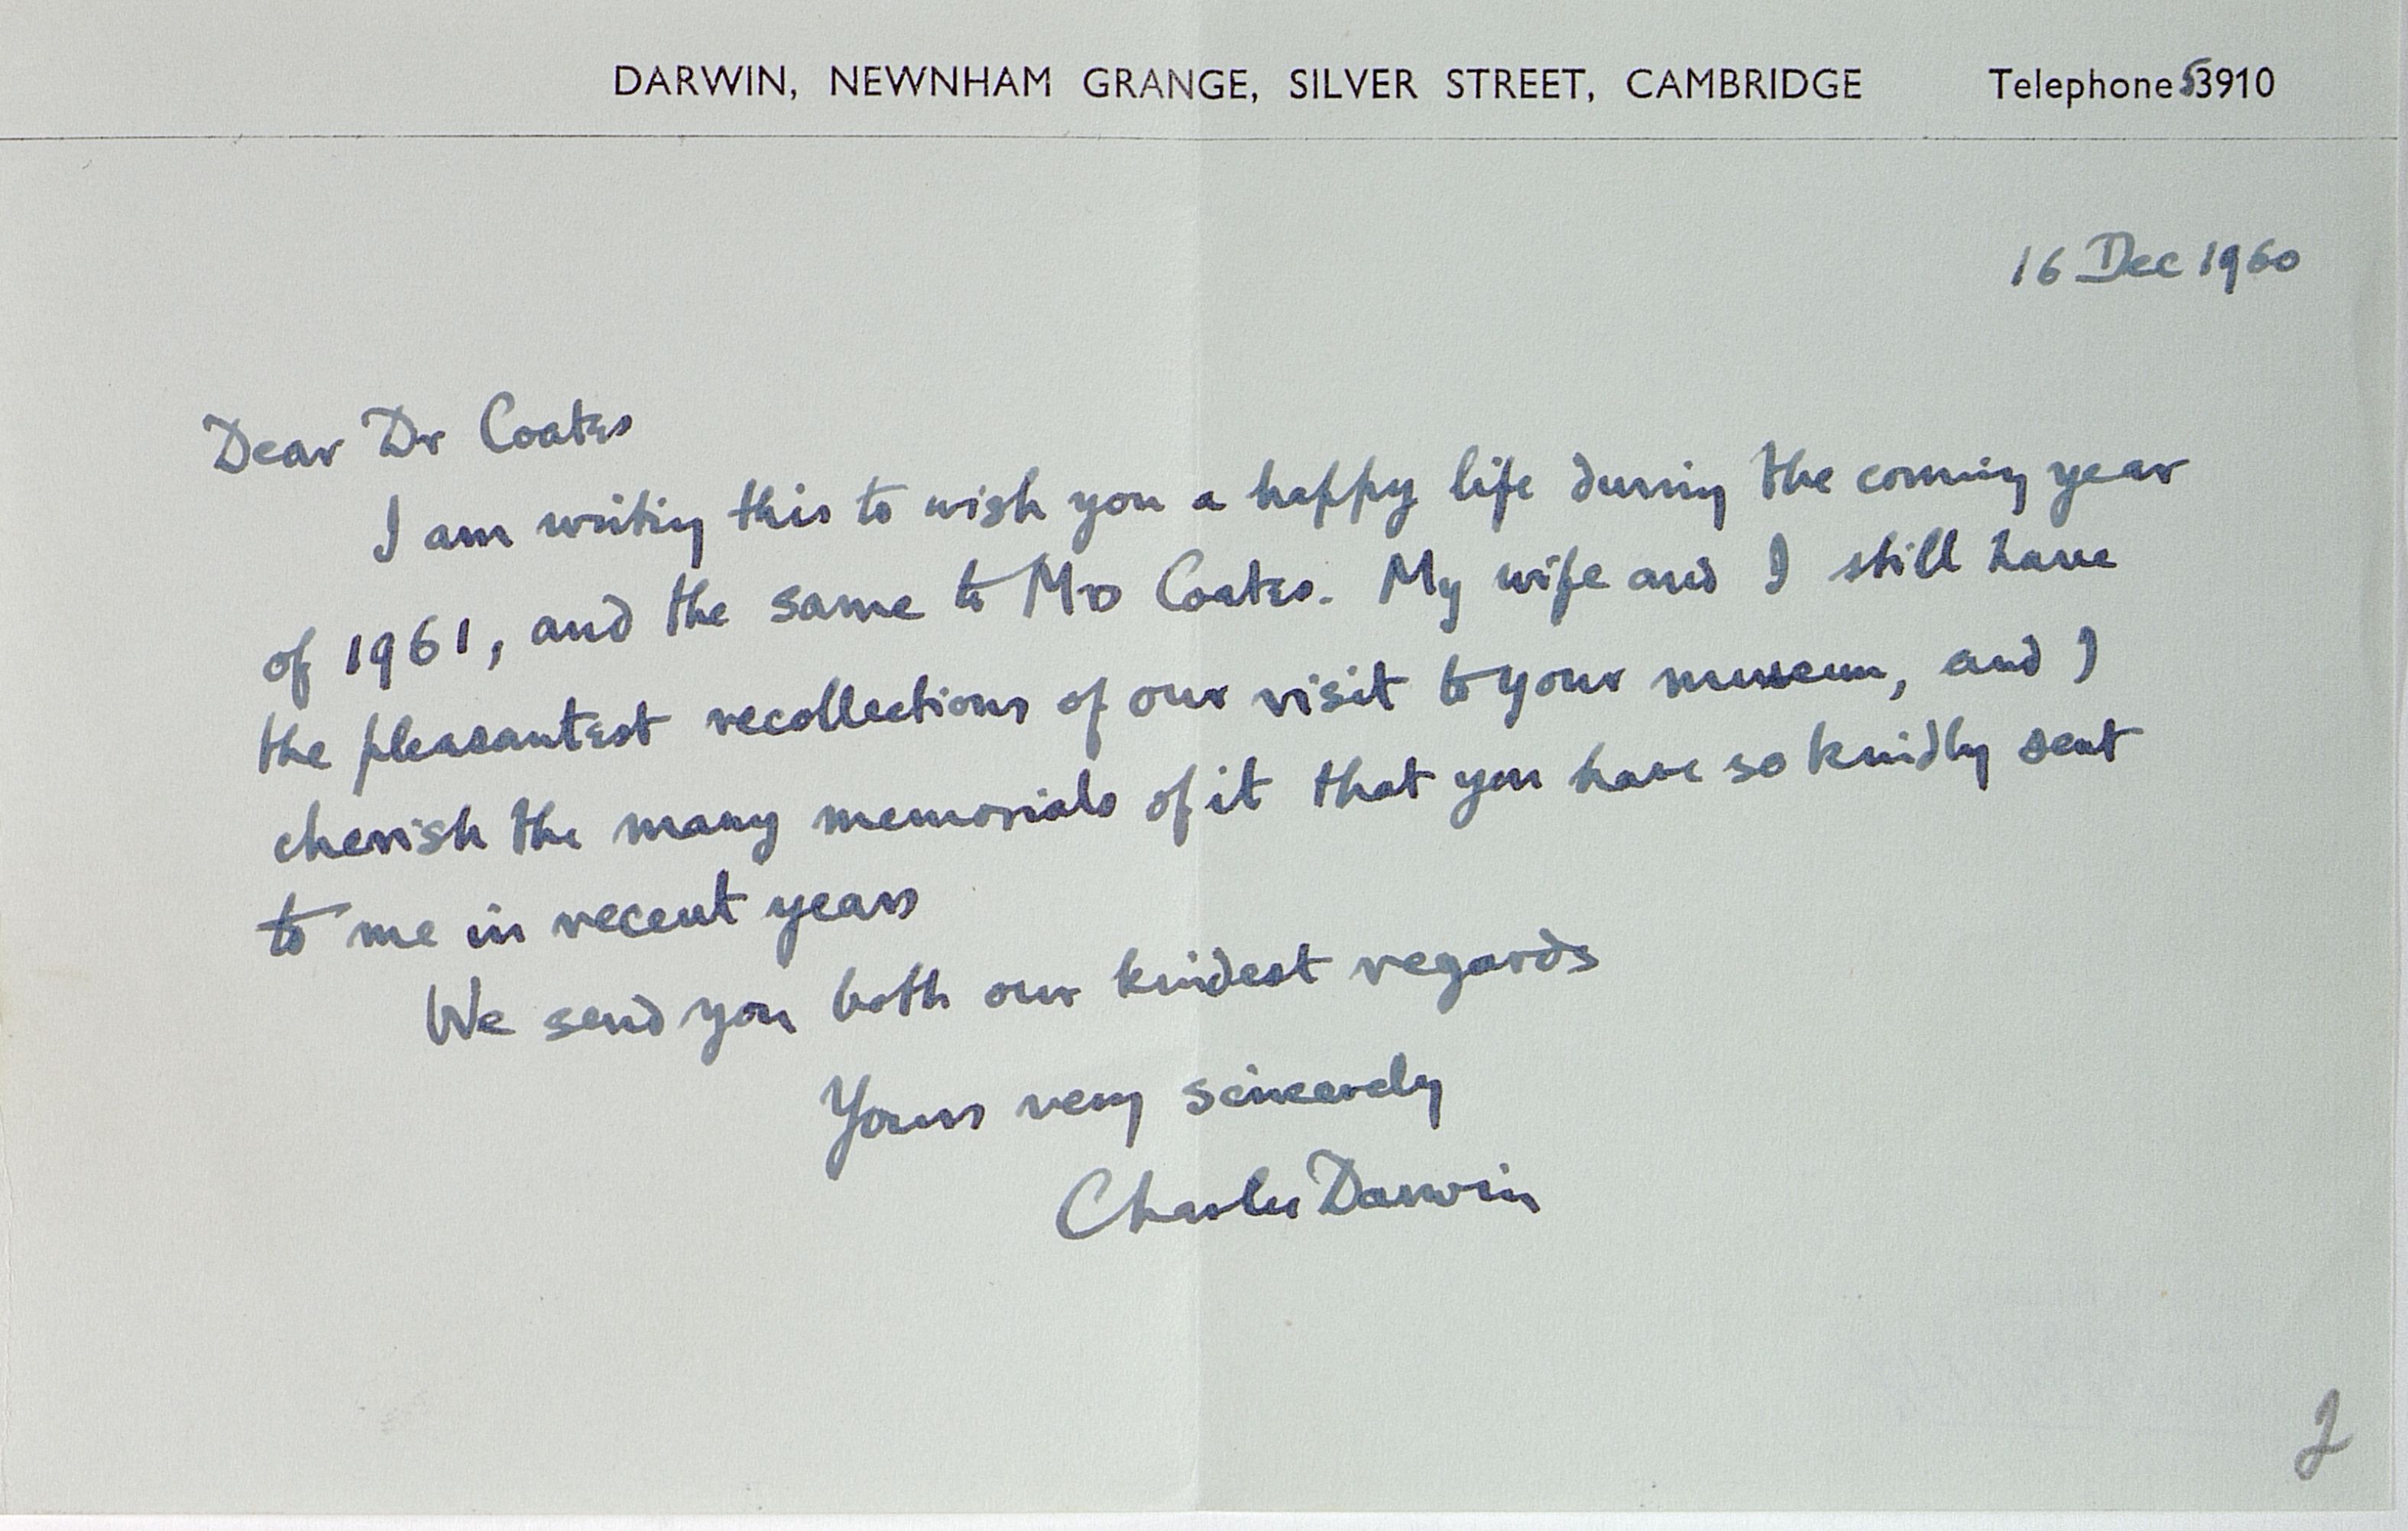 DARWIN, NEWNHAM GRANGE, SILVER STREET, CAMBRIDGE Telephone 53910
16 Dec 1960
Dear Dr Coates
I am writing this to wish you a happy life during the coming year
of 1961, and the same to Mrs Coates. My wife and I still have
the pleasantest recollections of our visit to your museum, and I
cherish the many memorials of it that you have so kindly sent
to me in recent years
We send you both our kindest regards
Yours very sincerely
Charles Darwin
2